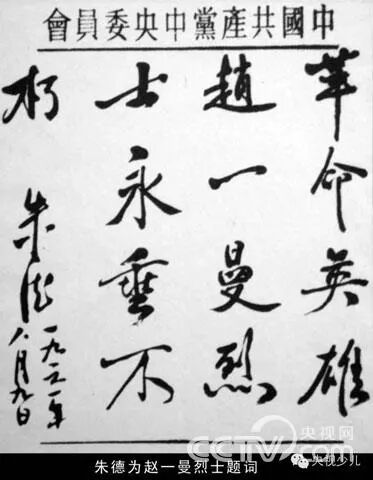 中國共產黨中央委員會
革命英雄
趙一曼烈
士永垂不
朽
朱德
一九六一年
八月九日
央视网
CCTV.com
朱德为赵一曼烈士题词
央视少儿